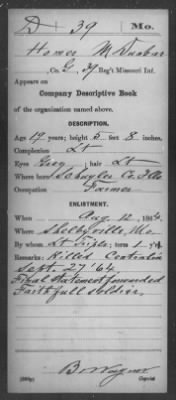 D 39 Mo.
Homer M Dunbar
Co. G, 39 Reg't Missouri Inf.
Appears on
Company Descriptive Book
of the organization named above.
DESCRIPTION.
Age 19 years; height 5 feet 8 inches.
Complexion Lt
Eyes Grey; hair Lt
Where born Schuyler Co, Ills
Occupation Farmer
ENLISTMENT.
When Aug 12, 1864.
Where Shelbyville, Mo.
By whom Lt; term 1 y'rs.
Remarks: Killed Centralia
Sept. 27 '64
Final Statement forwarded
Faithfull Soldier.
Wagner
Copyist.